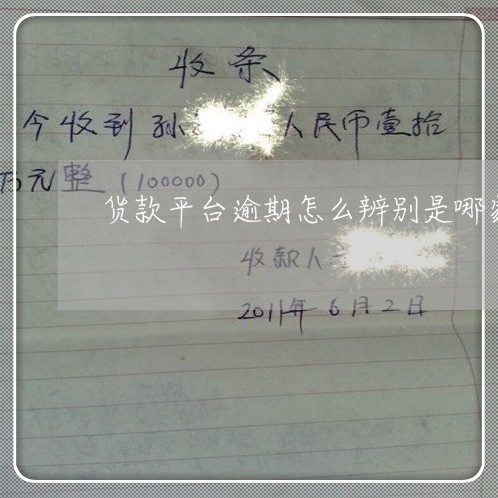 收条
今收到孙 人民币壹拾
万元整(100000)
货款平台逾期怎么辨别是哪
收款人
2011年6月2日